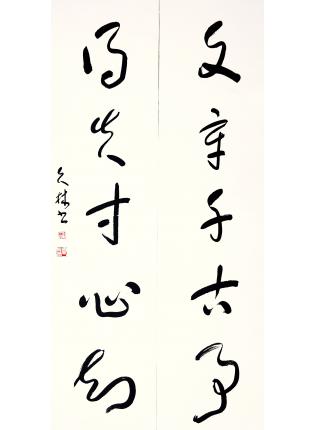 文章千古事
得失寸心知
久林书